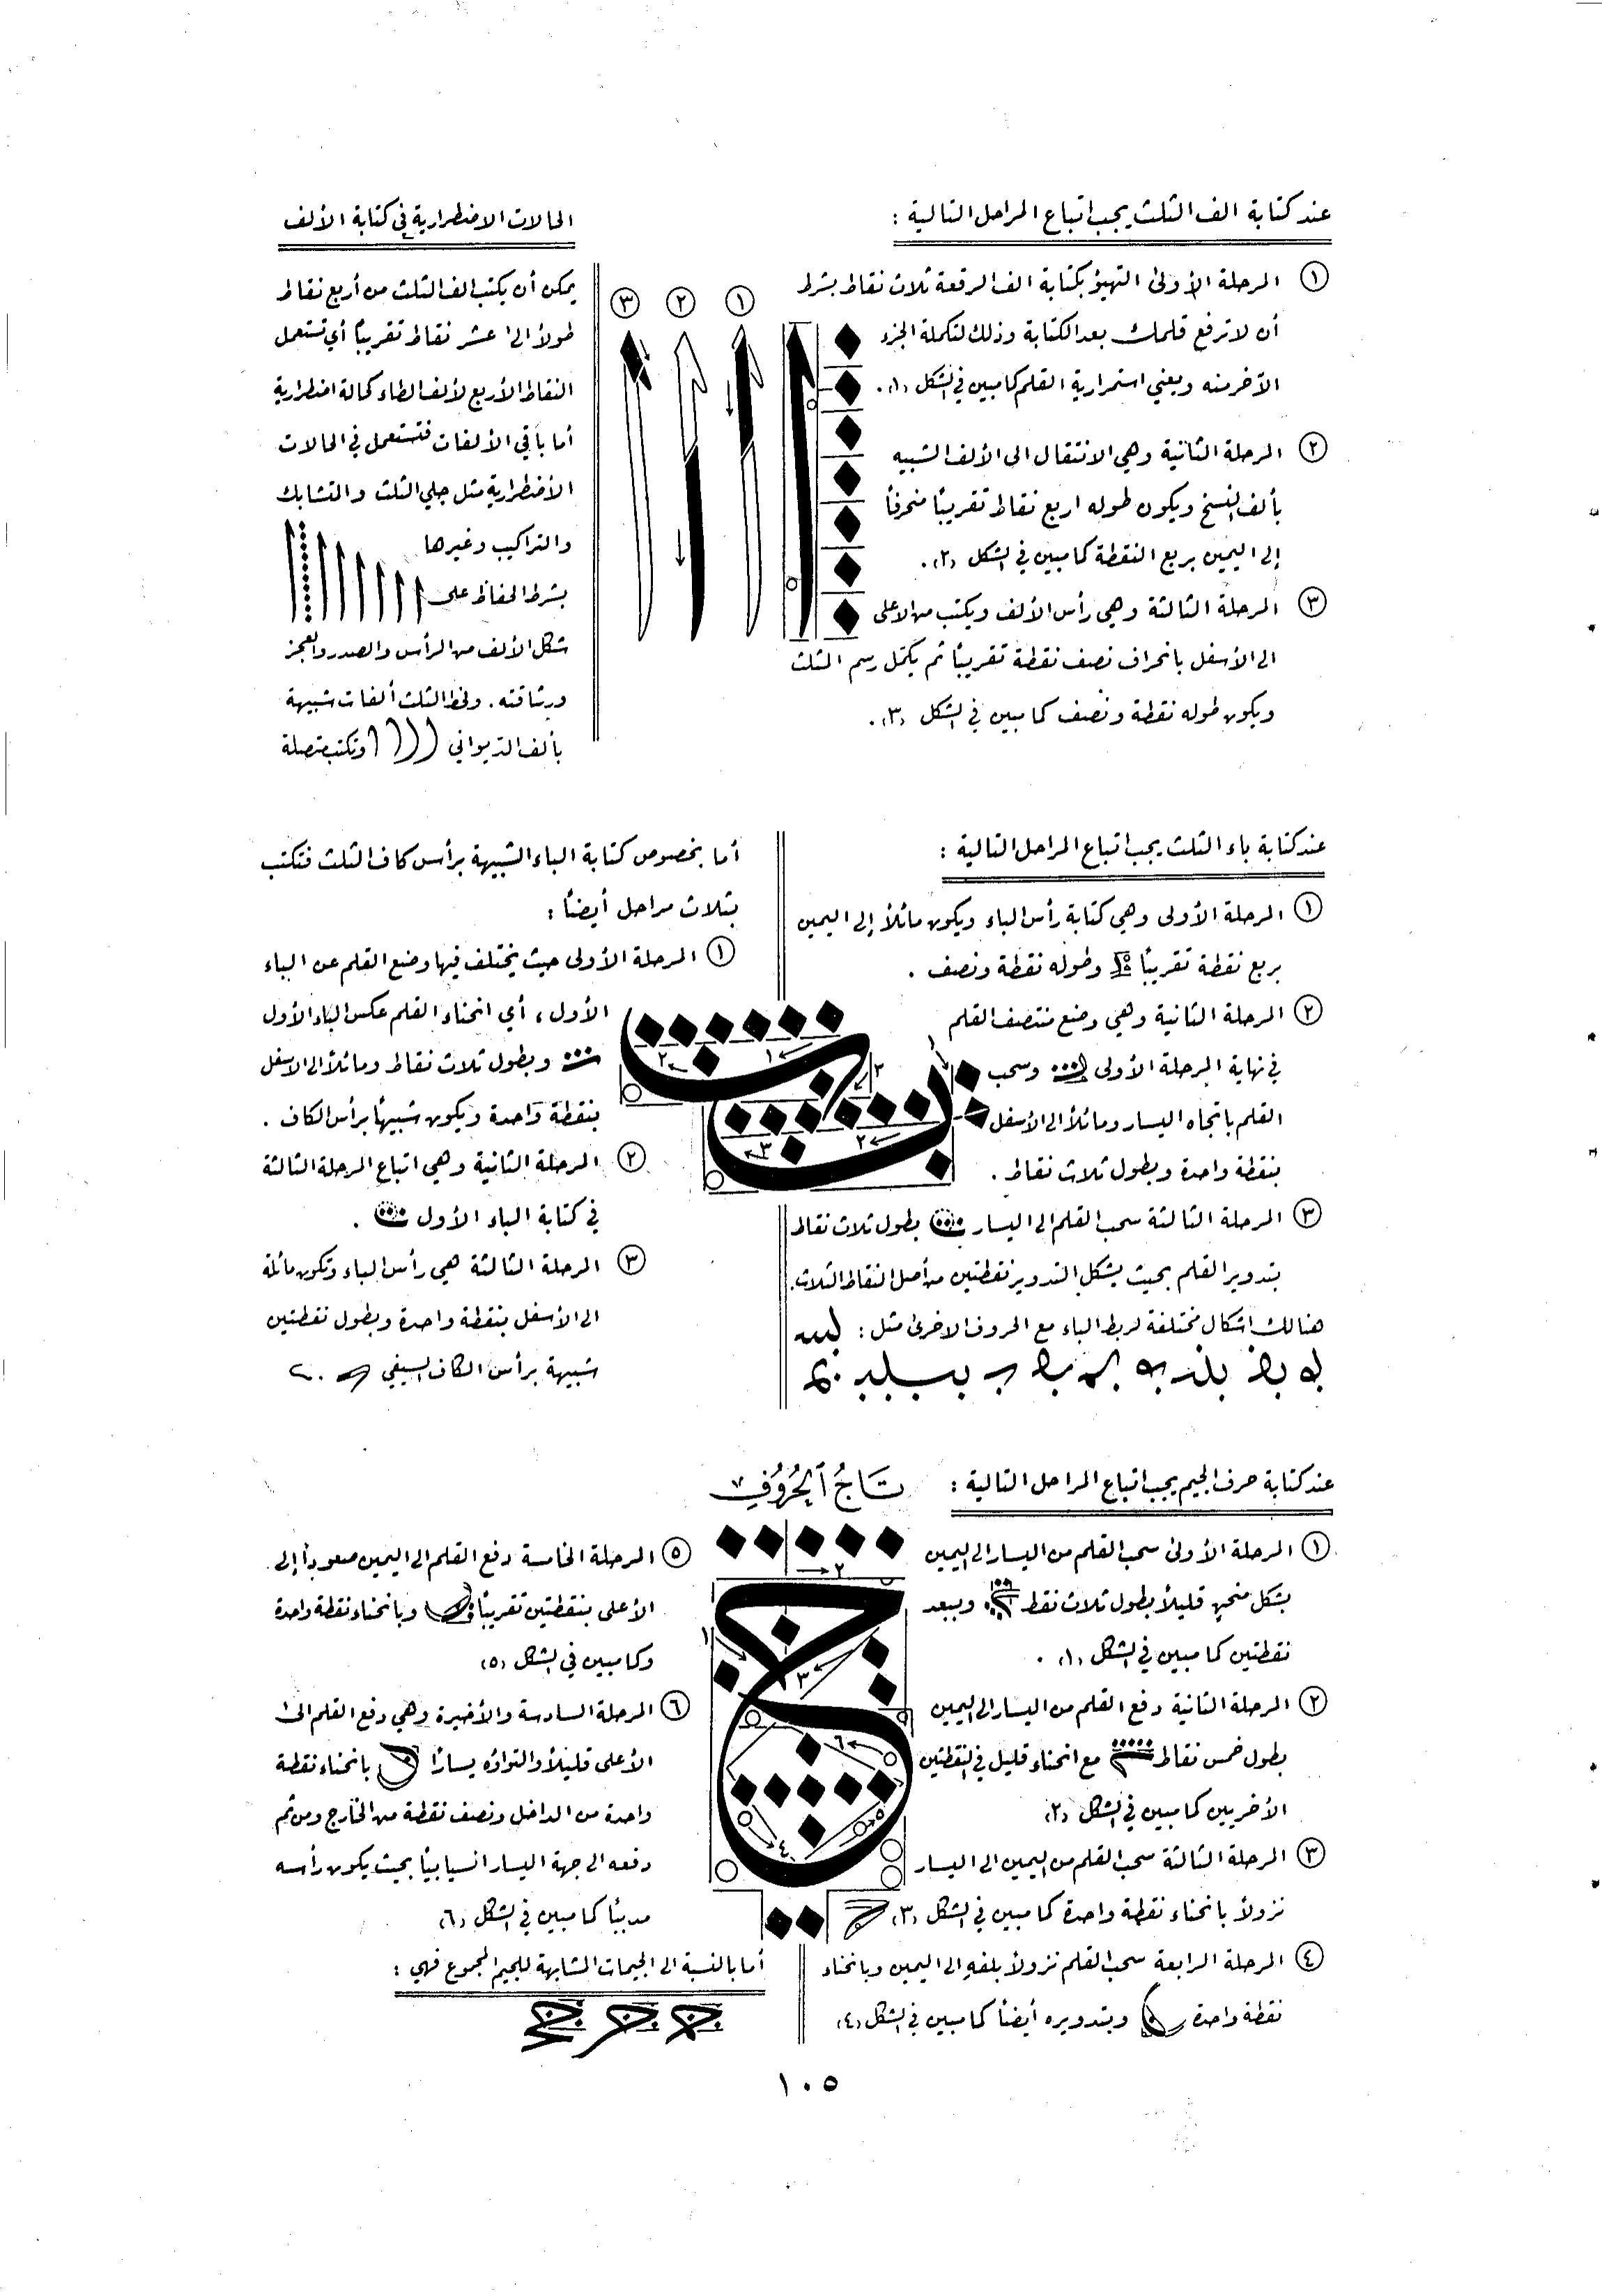 عند كتابة الف الثلث يجب اتباع المراحل التالية :
١ المرحلة الأولى التهيؤ بكتابة الف الرقعة ثلاث نقاط بشرط
أن لا ترفع قلمك بعد الكتابة وذلك لتكملة الجزء
الآخر منه ويعني استمرارية القلم كما مبين في الشكل (١) .
٢ المرحلة الثانية وهي الانتقال الى الألف الشبيه
بألف النسخ ويكون طوله اربع نقاط تقريباً منحرفاً
إلى اليمين بربع النقطة كما مبين في الشكل (٢) .
٣ المرحلة الثالثة وهي رأس الألف ويكتب من الاعلى
الى الأسفل بانحراف نصف نقطة تقريباً ثم يكمل رسم الثلث
ويكون طوله نقطة ونصف كما مبين في الشكل (٣) .
١ ٢ ٣
الحالات الاضطرارية في كتابة الألف
يمكن أن يكتب الف الثلث من أربع نقاط
طولاً الى عشر نقاط تقريباً أي تستعمل
النقاط الأربع لألف الطاء كحالة اضطرارية
أما باقي الألفات فتستعمل في الحالات
الأضطرارية مثل جلي الثلث والتشابك
والتراكيب وغيرها
بشرط الحفاظ على
شكل الألف من الرأس والصدر والعجز
ورشاقته . ولخط الثلث ألفات شبيهة
بألف الديواني وتكتب متصلة
عند كتابة باء الثلث يجب اتباع المراحل التالية :
١ المرحلة الأولى وهي كتابة رأس الباء ويكون مائلاً إلى اليمين
بربع نقطة تقريباً وطوله نقطة ونصف .
٢ المرحلة الثانية وهي وضع منتصف القلم
في نهاية المرحلة الأولى وسحب
القلم باتجاه اليسار ومائلاً الى الأسفل
بنقطة واحدة وبطول ثلاث نقاط .
٣ المرحلة الثالثة سحب القلم الى اليسار بطول ثلاث نقاط
بتدوير القلم بحيث يشكل التدوير نقطتين من أصل النقاط الثلاث .
هنالك اشكال مختلفة لربط الباء مع الحروف الاخرى مثل :
أما بخصوص كتابة الباء الشبيهة برأس كاف الثلث فتكتب
بثلاث مراحل أيضاً :
١ المرحلة الأولى حيث يختلف فيها وضع القلم عن الباء
الأول ، أي انحناء القلم عكس الباء الأول
وبطول ثلاث نقاط ومائلاً الى الاسفل
بنقطة واحدة ويكون شبيهاً برأس الكاف .
٢ المرحلة الثانية وهي اتباع المرحلة الثالثة
في كتابة الباء الأول .
٣ المرحلة الثالثة هي رأس الباء وتكون مائلة
الى الأسفل بنقطة واحدة وبطول نقطتين
شبيهة برأس الكاف السيفي
عند كتابة حرف الجيم يجب اتباع المراحل التالية :
تَاجُ ٱلْحُرُوفِ
١ المرحلة الأولى سحب القلم من اليسار الى اليمين
بشكل منحنٍ قليلاً بطول ثلاث نقط ويبعد
نقطتين كما مبين في الشكل (١) .
٢ المرحلة الثانية دفع القلم من اليسار الى اليمين
بطول خمس نقاط مع انحناء قليل في النقطتين
الأخريين كما مبين في الشكل (٢)
٣ المرحلة الثالثة سحب القلم من اليمين الى اليسار
نزولاً بانحناء نقطة واحدة كما مبين في الشكل (٣)
٤ المرحلة الرابعة سحب القلم نزولاً بلفه الى اليمين وبانحناء
نقطة واحدة وبتدويره أيضاً كما مبين في الشكل (٤)
٥ المرحلة الخامسة دفع القلم الى اليمين صعوداً إلى
الأعلى بنقطتين تقريباً وبانحناء نقطة واحدة
وكما مبين في الشكل (٥)
٦ المرحلة السادسة والأخيرة وهي دفع القلم الى
الأعلى قليلاً والتواؤه يساراً بانحناء نقطة
واحدة من الداخل ونصف نقطة من الخارج ومن ثم
دفعه الى جهة اليسار انسيابياً بحيث يكون رأسه
مدبباً كما مبين في الشكل (٦)
أما بالنسبة الى الجيمات المشابهة للجيم المجموع فهي :
١٠٥